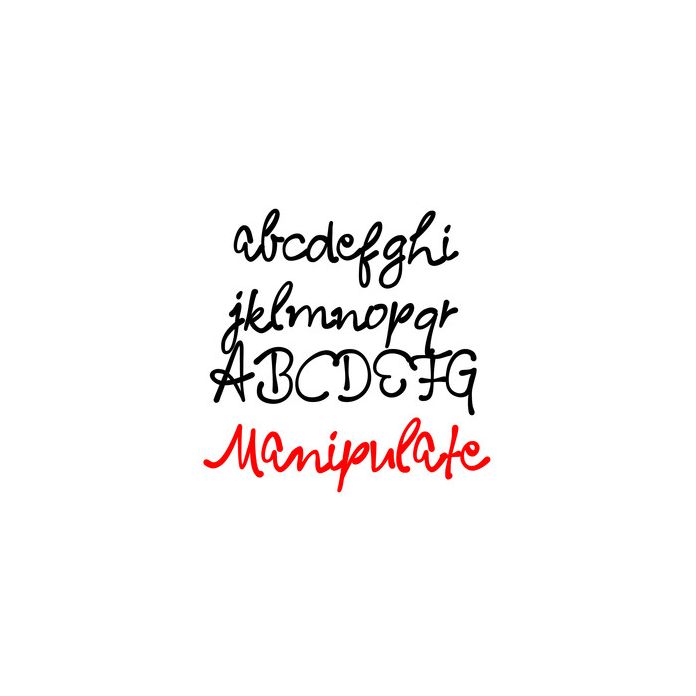 abcdefghi
jklmnopqr
ABCDEFG
Manipulate